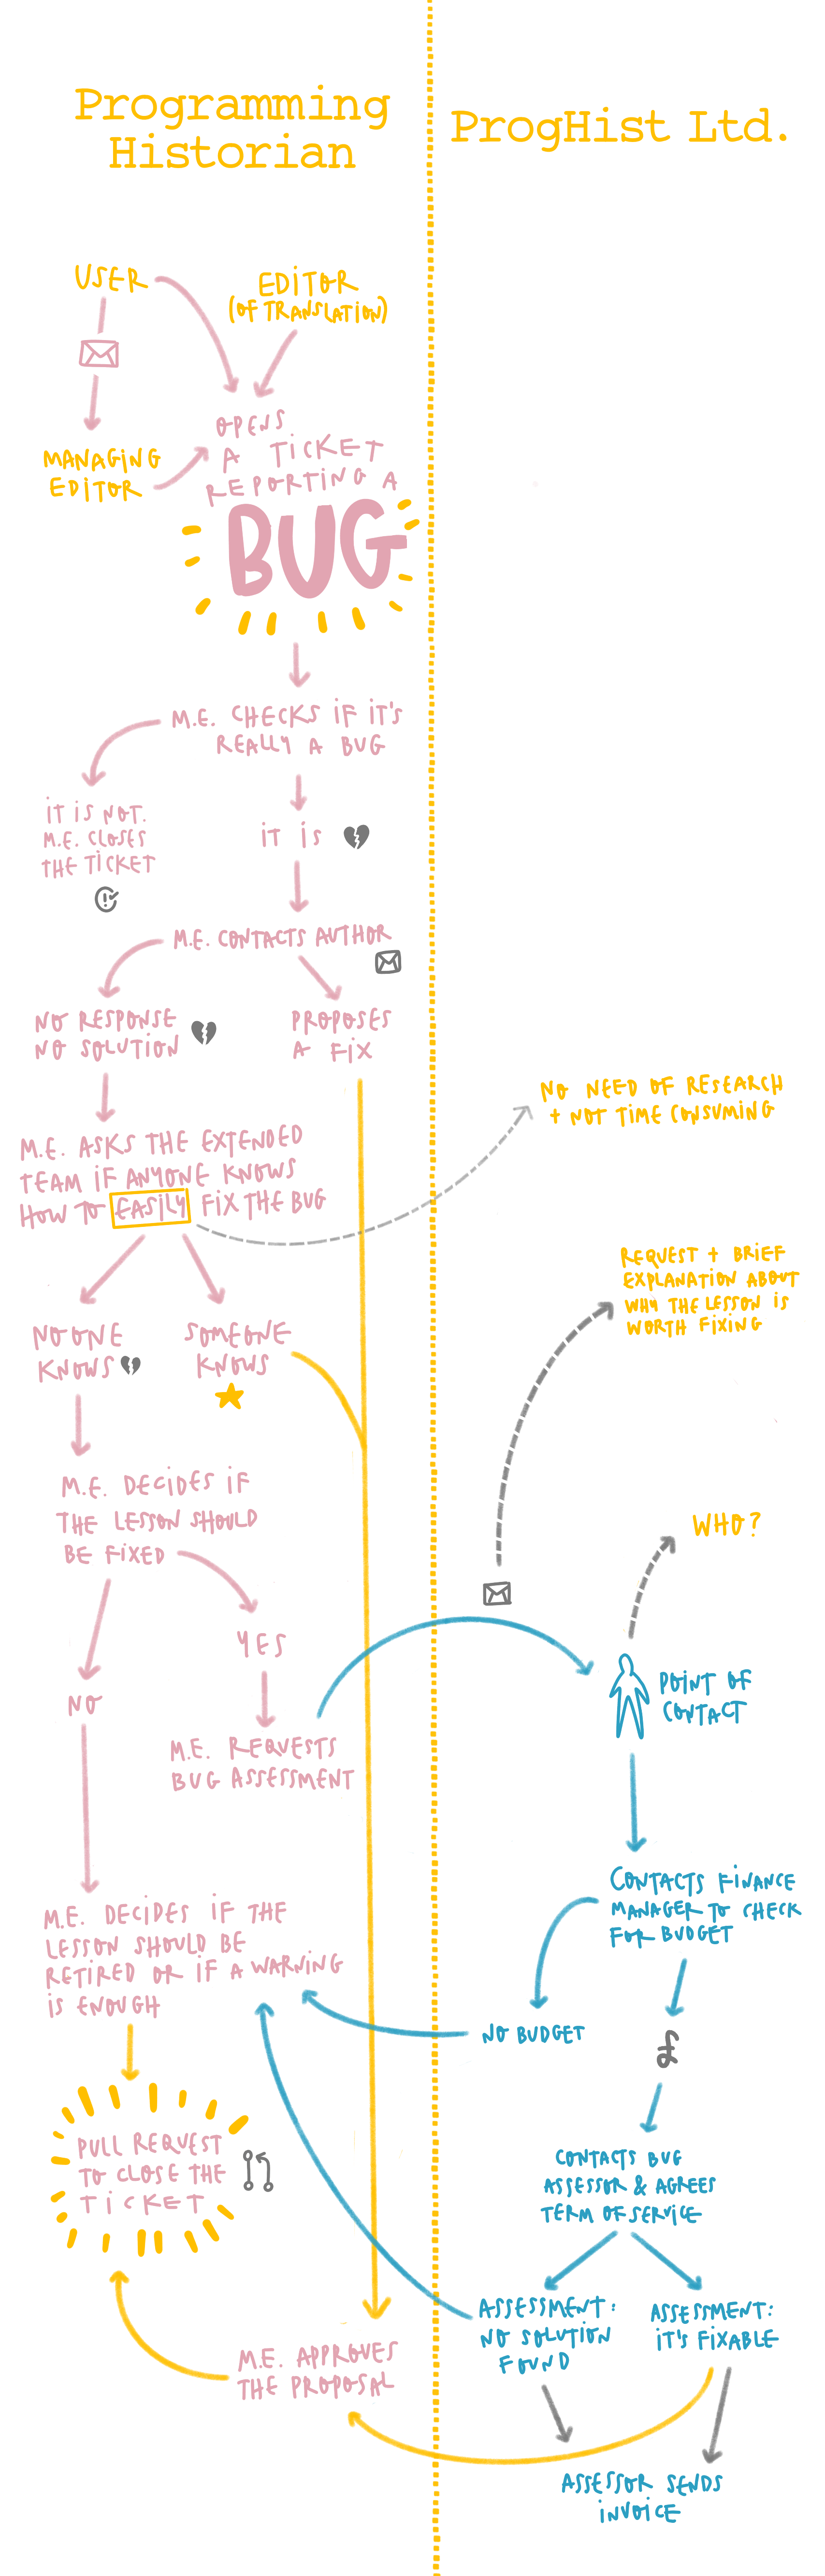 Programming
Historian
ProgHist Ltd.
USER
EDITOR
(OF TRANSLATION)
MANAGING
EDITOR
OPENS
A TICKET
REPORTING A
BUG
M.E. CHECKS IF IT'S
REALLY A BUG
IT IS NOT.
M.E. CLOSES
THE TICKET
IT IS
M.E. CONTACTS AUTHOR
NO RESPONSE
NO SOLUTION
PROPOSES
A FIX
NO NEED OF RESEARCH
+ NOT TIME CONSUMING
M.E. ASKS THE EXTENDED
TEAM IF ANYONE KNOWS
HOW TO EASILY FIX THE BUG
REQUEST + BRIEF
EXPLANATION ABOUT
WHY THE LESSON IS
WORTH FIXING
NO ONE
KNOWS
SOMEONE
KNOWS
M.E. DECIDES IF
THE LESSON SHOULD
BE FIXED
WHO?
YES
NO
POINT OF
CONTACT
M.E. REQUESTS
BUG ASSESSMENT
CONTACTS FINANCE
MANAGER TO CHECK
FOR BUDGET
M.E. DECIDES IF THE
LESSON SHOULD BE
RETIRED OR IF A WARNING
IS ENOUGH
NO BUDGET
£
PULL REQUEST
TO CLOSE THE
TICKET
CONTACTS BUG
ASSESSOR & AGREES
TERM OF SERVICE
ASSESSMENT:
NO SOLUTION
FOUND
ASSESSMENT:
IT'S FIXABLE
M.E. APPROVES
THE PROPOSAL
ASSESSOR SENDS
INVOICE